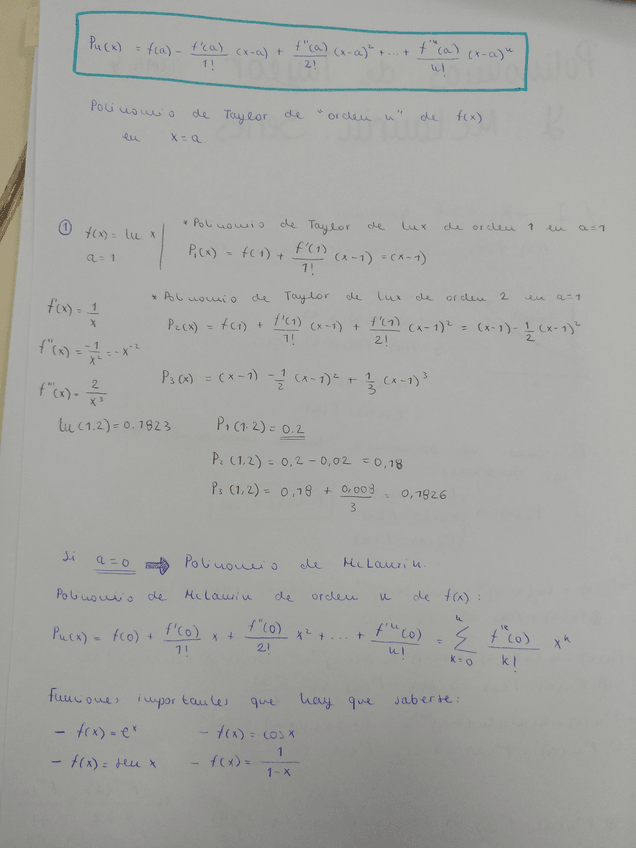 Pn(x) = f(a) - f'(a)/1! (x-a) + f''(a)/2! (x-a)² + ... + f'ⁿ(a)/n! (x-a)ⁿ
Polinomio de Taylor de "orden n" de f(x)
en x=a
① f(x) = ln x
a = 1
* Polinomio de Taylor de lnx de orden 1 en a=1
P₁(x) = f(1) + f'(1)/1! (x-1) = (x-1)
f'(x) = 1/x
f''(x) = -1/x² = -x⁻²
f'''(x) = 2/x³
* Polinomio de Taylor de lnx de orden 2 en a=1
P₂(x) = f(1) + f'(1)/1! (x-1) + f''(1)/2! (x-1)² = (x-1) - 1/2 (x-1)²
P₃(x) = (x-1) - 1/2 (x-1)² + 1/3 (x-1)³
ln(1.2) = 0.1823
P₁(1.2) = 0.2
P₂(1,2) = 0,2 - 0,02 = 0,18
P₃(1,2) = 0,18 + 0,008/3 = 0,1826
Si a=0 ⇒ Polinomio de McLaurin.
Polinomio de McLaurin de orden n de f(x):
Pn(x) = f(0) + f'(0)/1! x + f''(0)/2! x² + ... + f'ⁿ(0)/n! = ∑ₖ₌₀ⁿ f'ᵏ(0)/k! xᵏ
Funciones importantes que hay que saberse:
- f(x) = eˣ - f(x) = cosx
- f(x) = sen x - f(x) = 1/1-x